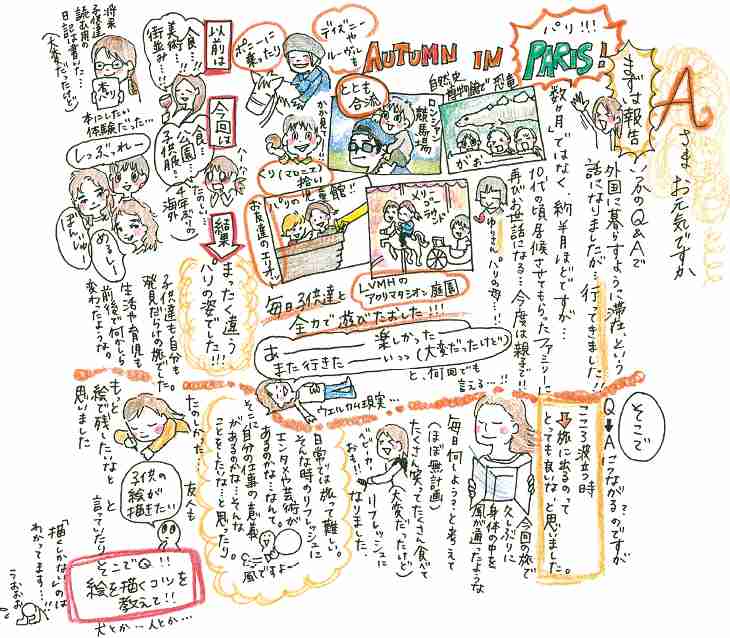 Aさま お元気ですか
まずは報告
パリ!!!
AUTUMN IN PARIS!
外国に暮らすように滞在、という
話になりましたが…行ってきました!!
数ヶ月ではなく、約半月ほどですが…
10代の頃居候させてもらったファミリーに
再びお世話になる…今度は親子で!!
ゆりさん
パリの母…
自然史
博物館で恐竜
がお
ロンシャン
競馬場
ととも
合流
メリー
ゴー
ラウンド
LVMHの
アクリマタシオン庭園
ディズニーや
ルーヴルも
ポニーに
乗ったり
くり(マロニエ)
拾い
パリの児童館!!
お友達のエリオット
毎日子供達と
全力で遊びたおした!!!
あーーー楽しかったーーー
また行きたーーーいっっ(大変だったけど)
と、何回でも
言える…!!
ウェルカム現実…
以前は
食…!!
美術…!!
街並み…!!
将来
子供達が
読む用の
日記は書いた…
(大変だったので)
パリ
本にしたい
体験だった…
今回は
食…
公園…
子供服…
たのしい…
4年ぶりの
海外
しつぶぅれー
ぼんじゅー
めるしー
結果
まったく違う
パリの姿でした!!!
子供達も自分も
発見だらけの旅でした。
生活や育児も
前後で何かしら
変わったような。
そこで
Q→Aにつながるのですが
こころ波立つ時
旅に出るのって
とっても良いな、と思いました。
今回の旅で
久しぶりに
身体の中を
風が通ったような
毎日何しよう?と考えて
(ほぼ無計画)
たくさん笑ってたくさん食べて
(大変だったけど)
リフレッシュに
なりました。
ベビーカー
おも!!
日常では旅って難しい。
そんな時のリフレッシュに
エンタメや芸術が
あるのかな…なんて。
そこに自分の仕事の意義
があるのかな…そんな
ことをしたいな…と思ったり。
風ですよ〜
たのしかった…
もっと
絵で残したいなと
思いました
友人も
子供の
絵が
描きたい
と
言っていたりと
そこでQ!!
絵を描くコツを
教えて!!
犬とか…人とか…
「描くしかない」のは
わかってます…!!
うおおお